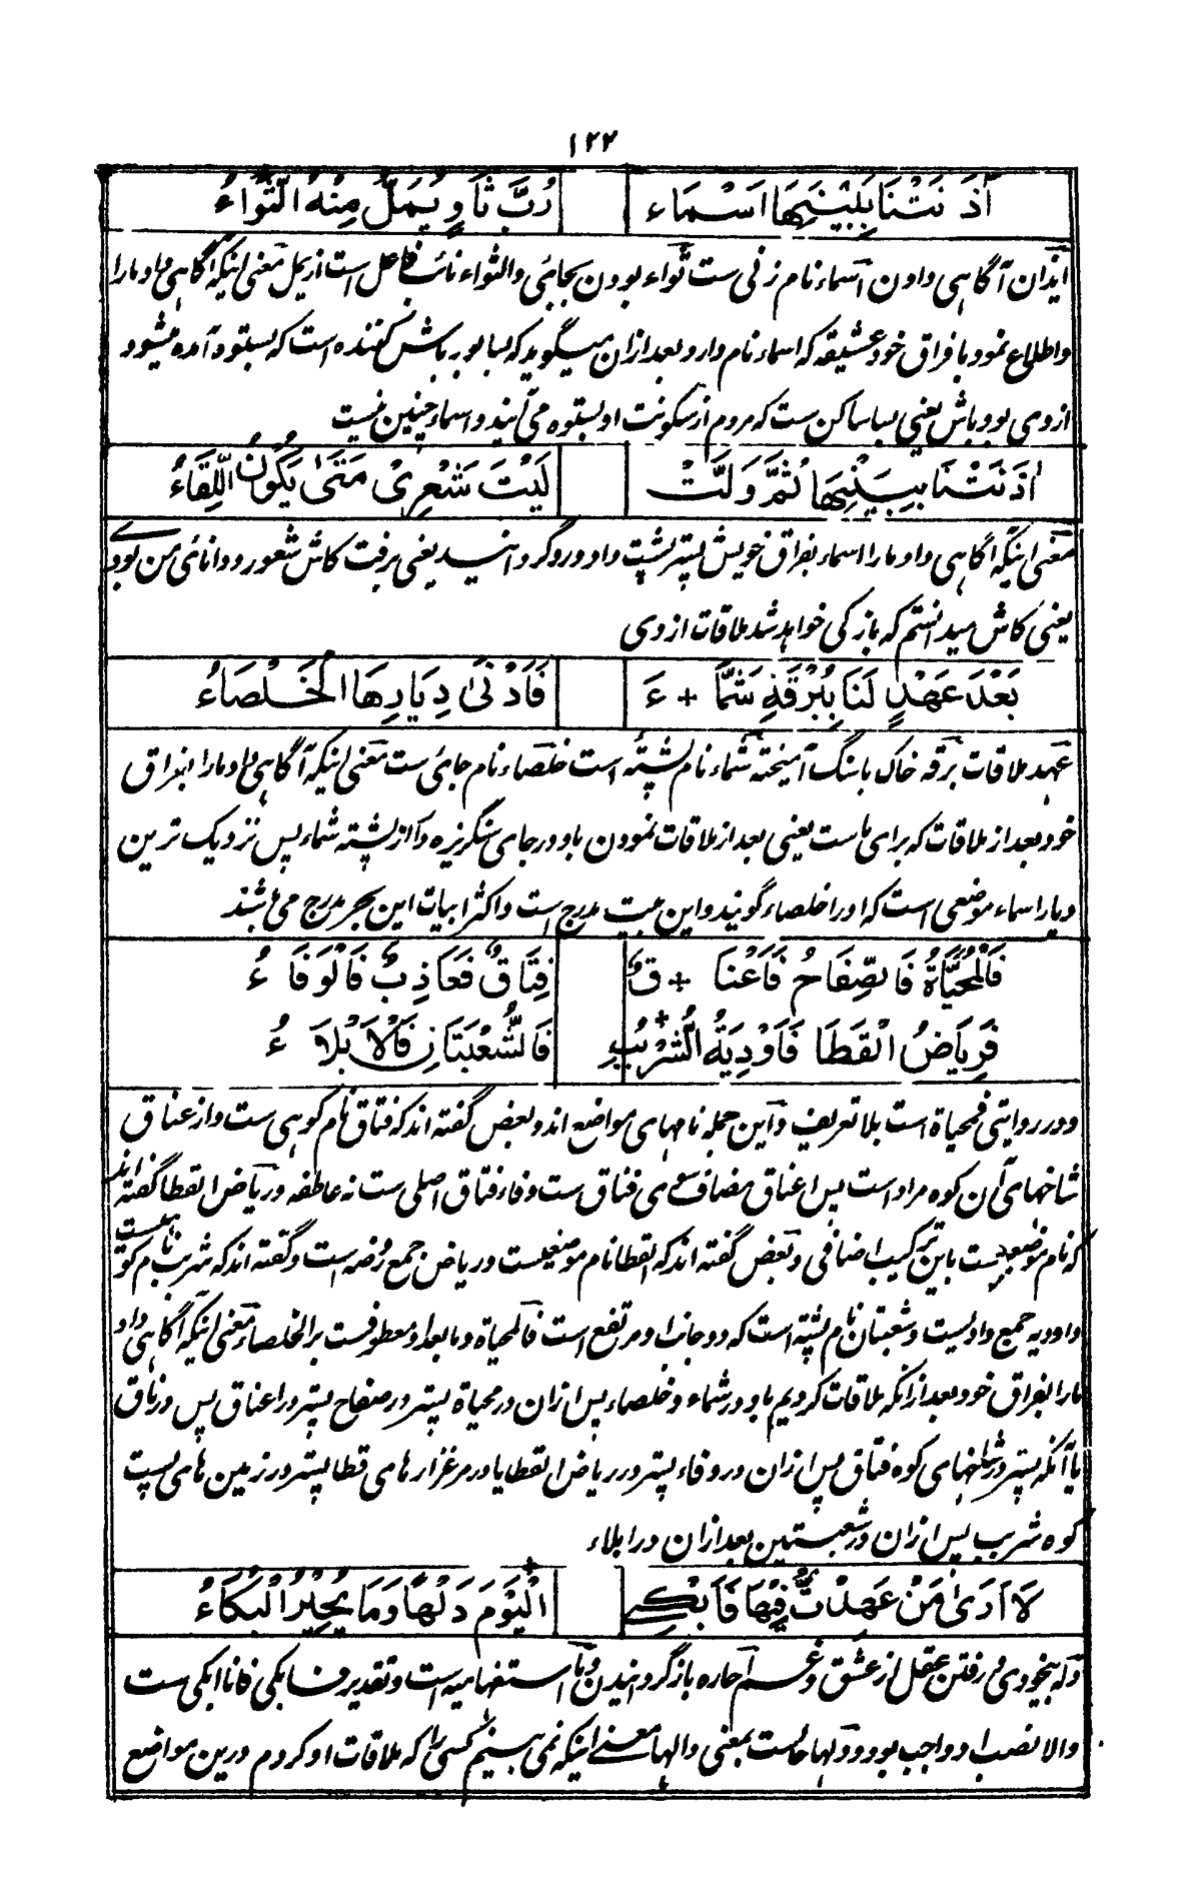 ۱۲۲
آذَنَتْنَا بِبَيْنِهَا اَسْمَاء رُبَّ ثَاوٍ يُمَلُّ مِنْهُ الثَّوَاءُ
ایذان آگاہی دادن آسماء نام زنی ست ثواء بودن بجائی والثواء نائب فاعل است از یمل معنی اینکه آگاہی داد مارا
واطلاع نمود بافراق خود عشیقه که اسماء نام دارد بعد ازان میگوید که بسا بود باش کننده است که بستوه آمده میشود
از وی بود باش یعنی بسا ساکن ست که مردم از سکونت او بستوه می آیند و اسماء چنین نیست
اٰذَنَتْنَا بِبَيْنِهَا ثُمَّ وَلَّتْ لَيْتَ شَعْرِىْ مَتَىٰ يَكُوْنُ اللِّقَاءُ
معنی اینکه آگاہی داد مارا اسماء بفراق خویش پستر پشت داد و روگردانید یعنی برفت کاش شعور و دانائی من بودے
یعنی کاش میدانستم که باز کی خواہد شد ملاقات از وی
بَعْدَ عَهْدٍ لَنَا بِبُرْقَةِ شَمَّا + ءَ فَاَدْنٰى دِيَارِهَا الْخَلْصَاءُ
عہد ملاقات برقه خاک باسنگ آمیخته شماء نام پشته است خلصاء نام جائی ست معنی اینکه آگاہی داد مارا بفراق
خود بعد از ملاقات که برای ماست یعنی بعد از ملاقات نمودن باو در جای سنگریزه دار از پشته شماء پس نزدیک ترین
دیار اسماء موضعی است که اورا خلصاء گویند و این بیت مدرج است و اکثر ابیات این بحر مدرج می باشند
فَالْمُحَيَّاةُ فَالصِّفَاحُ فَاَعْنَا + قُ فِتَاقٍ فَعَاذِبٌ فَالْوَفَاءُ
فَرِيَاضُ الْقَطَا فَاَوْدِيَةُ الشُّرْبُبِ فَالشُّعْبَتَانِ فَالْاَبْلَاءُ
و در روایتی فمحیاة است بلا تعریف و این جمله نامہای مواضع اند و بعض گفته اند که فتاق نام کوہی ست و از عناق
شاخہای آن کوه مراد است پس اعناق مضاف سوی فتاق ست و فاء فتاق اصلی ست نه عاطفه و ریاض القطا گفته اند
که نام موضعیست باین ترکیب اضافی و بعض گفته اند که القطا نام موضعیست و ریاض جمع روضه است و گفته اند که شربب نام کوہیست
و اودیه جمع وادیست و شعبتان نام پشته است که دو جانب او مرتفع است فالمحیاة و مابعد او معطوفست بر الخلصاء معنی اینکه آگاہی داد
مارا بفراق خود بعد ازانکه ملاقات کردیم باو در شماء و خلصاء پس ازان در محیاة پستر در صفاح پستر در اعناق پس در فتاق
یا آنکه پستر در شاخہای کوه فتاق پس ازان در وفاء پستر در ریاض القطا یا در مرغزارهای قطا پستر در زمین های پست
کوه شربب پس ازان در شعبتین بعد ازان در ابلاء
لَا اَرٰى مَنْ عَهِدْتُ فِيْهَا فَاَبْكِي الْيَوْمَ دَلْهًا وَمَا يُحِيْرُ الْبُكَاءُ
دله بیخودی و رفتن عقل از عشق و غم احاره بازگردانیدن و ما استفہامیه است و تقدیر فابکی فانا ابکی ست
والا نصب او واجب بود و دلہا حالست بمعنی والہا معنی اینکه نمی بینم کسی را که ملاقات او کردم درین مواضع